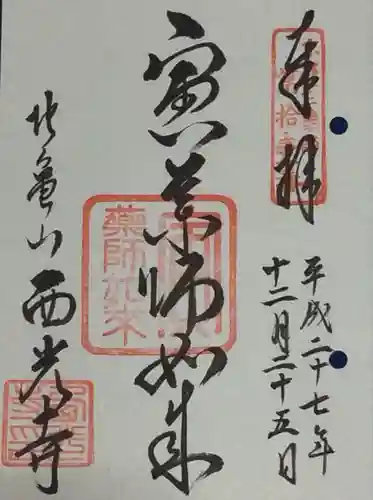 奉拝
平成二十七年
十二月二十五日
寅薬師如来
藥師如来
北亀山西光寺